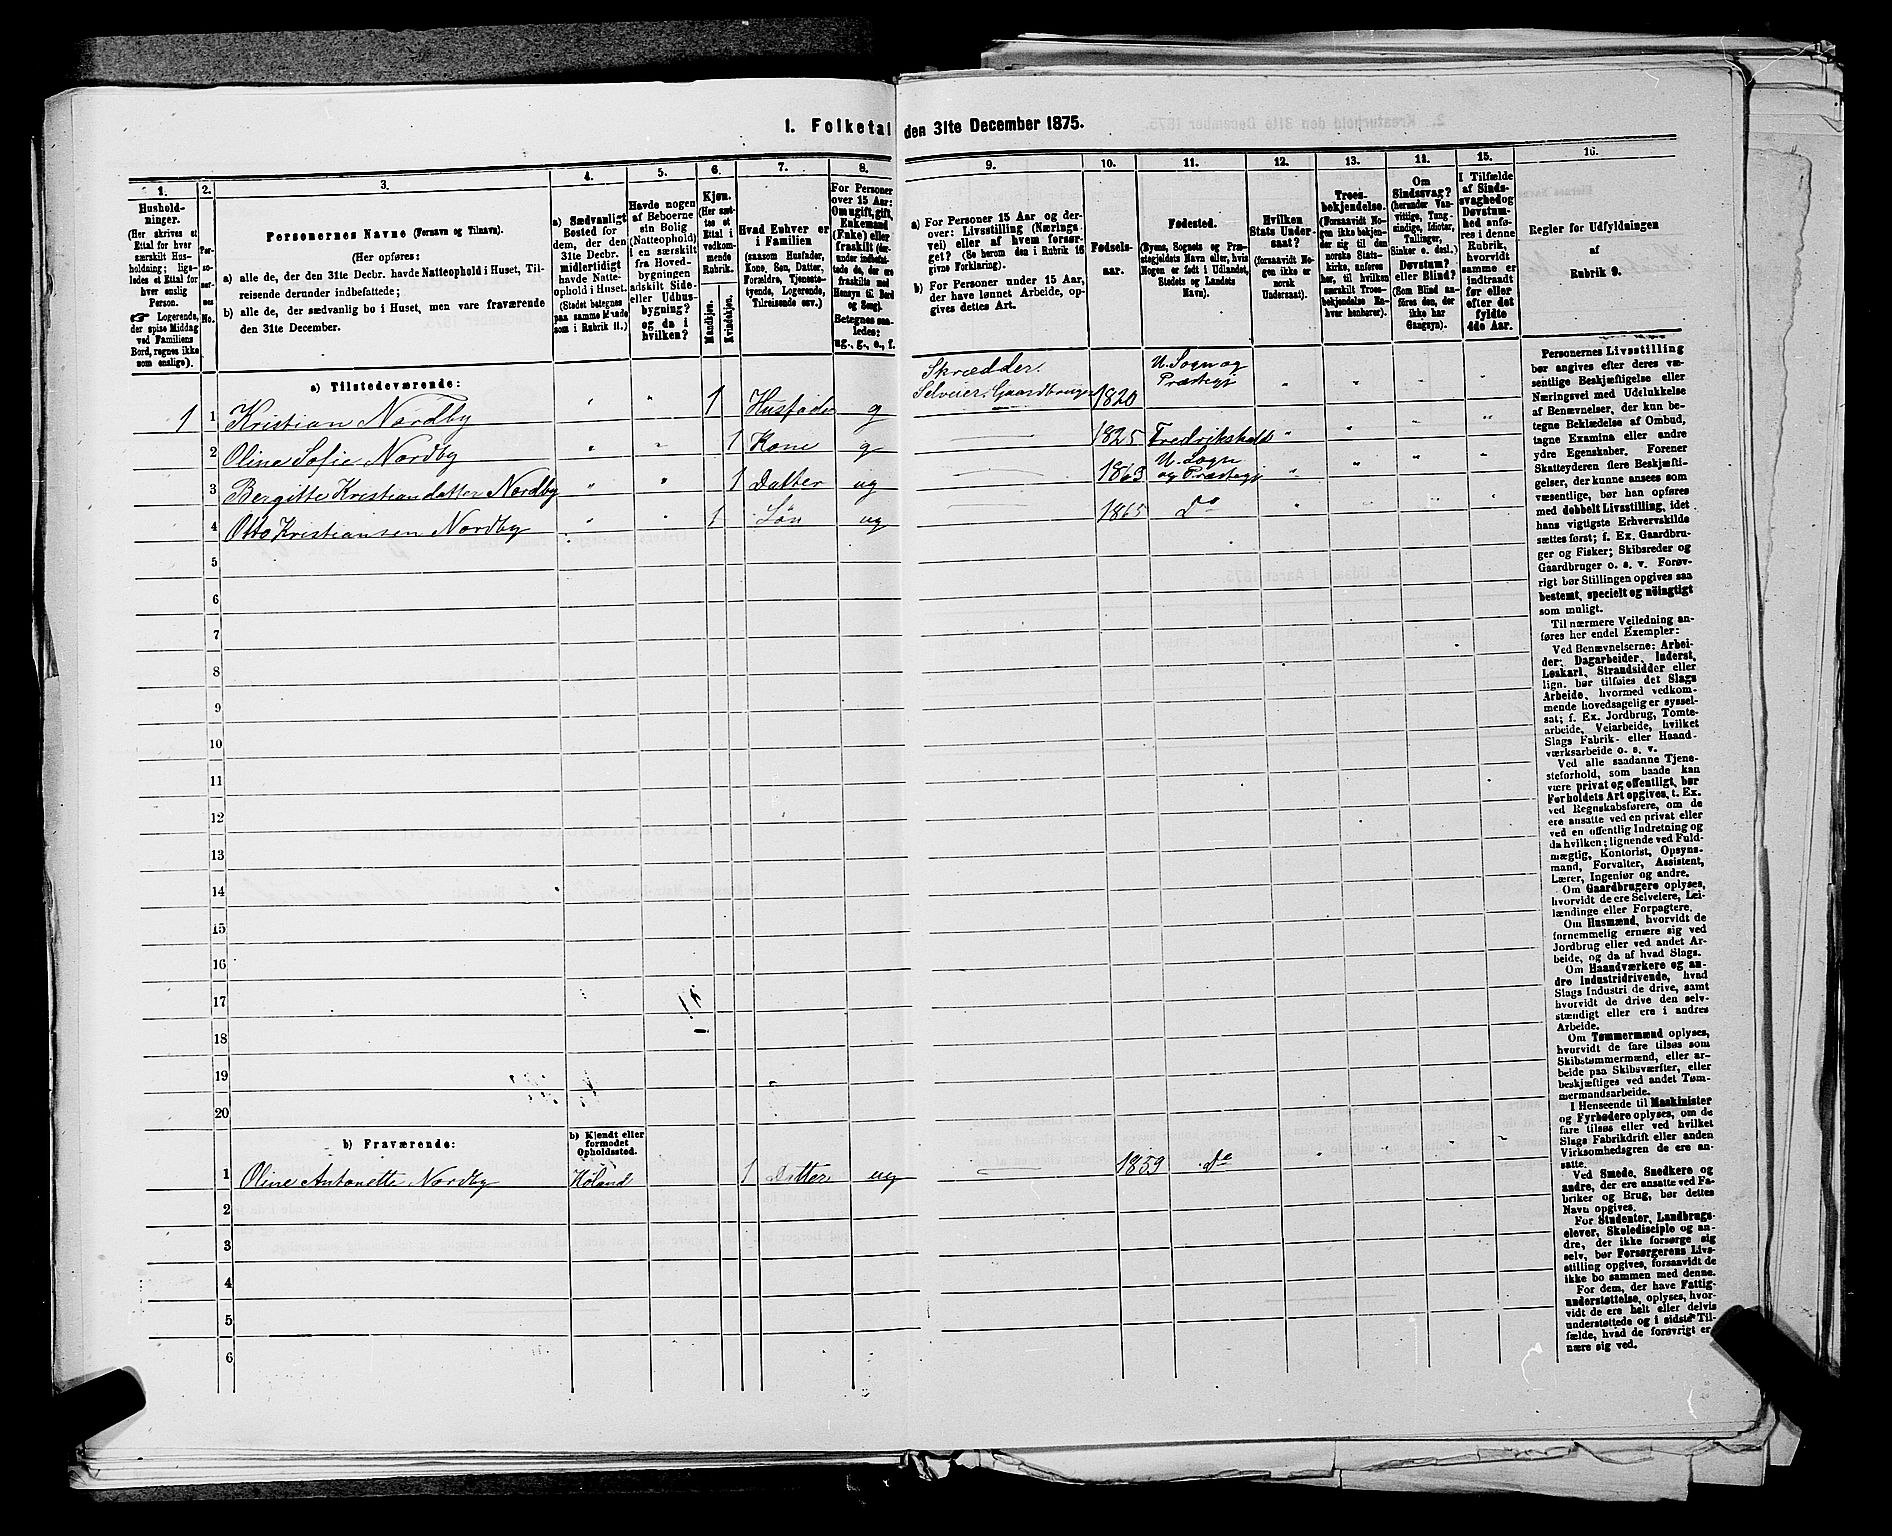 1. Folketal den 31te December 1875.
1. 2. 3. 4. 5. 6. 7. 8. 9. 10. 11. 12. 13. 14. 15. 16.
Hushold-
ninger.
(Her skrives et
Ettal for hver
særskilt Hus-
holdning; lige-
ledes et Ettal for
hver enslig
Person.
☞ Logerende,
der spise Middag
ved Familiens
Bord, regnes ikke
som enslige).
Per-
so-
ner-
nes
No.
Personernes Navne (Fornavn og Tilnavn).
(Her opføres:
a) alle de, der den 31te Decbr. havde Natteophold i Huset, Til-
reisende derunder indbefattede;
b) alle de, der sædvanlig bo i Huset, men vare fraværende
den 31te December.
a) Sædvanligt
Bosted for
dem, der den
31te Decbr.
midlertidigt
havde Natte-
ophold i Huset.
(Stedet betegnes
paa samme Maade
som i Rubrik 11.)
Havde nogen
af Beboerne
sin Bolig
(Natteophold)
i en særskilt
fra Hoved-
bygningen
adskilt Side-
eller Udhus-
bygning?
og da i
hvilken?
Kjøn.
(Her sæt-
tes et
Ettal i
vedkom-
mende
Rubrik.
Mandkjøn.
Kvindekjøn.
Hvad Enhver er
i Familien
(saasom Husfader,
Kone, Søn, Datter,
Forældre, Tjeneste-
tyende, Logerende,
Tilreisende osv.)
For Personer
over 15 Aar:
Om ugift, gift,
Enkemand
(Enke) eller
fraskilt (der-
under indbefat-
tede de, der ere
fraskilte med
Hensyn til Bord
og Seng).
Betegnes saa-
ledes:
ug., g., e., f.
a) For Personer 15 Aar og der-
over: Livsstilling (Nærings-
vei) eller af hvem forsør-
get? (Se herom den i Rubrik 16
givne Forklaring).
b) For Personer under 15 Aar,
der have lønnet Arbeide, op-
gives dettes Art.
Fødsels-
aar.
Fødested.
(Byens, Sognets og Præ-
stegjeldets Navn eller, hvis
Nogen er født i Udlandet,
Stedets og Landets
Navn).
Hvilken
Stats Under-
saat?
(forsaavidt No-
gen ikke er
norsk
Undersaat).
Troes-
bekjendelse.
(Forsaavidt No-
gen ikke bekjen-
der sig til den
norske Stats-
kirke, anføres
her, til hvilken
særskilt Troes-
bekjendelse En-
hver henhører).
Om
Sindssvag?
(herunder Van-
vittige, Tung-
sindige, Idioter,
Tullinger,
Sinker o. desl.)
Døvstum?
eller Blind?
(Som Blind an-
føres den, der
ikke har
Gangsyn).
I Tilfælde
af Sinds-
svaghed og
Døvstum-
hed anfø-
res i denne
Rubrik,
hvorvidt
samme er
indtraadt
før eller
efter det
fyldte
4de Aar.
Regler for Udfyldningen
af
Rubrik 9.
a) Tilstedeværende:
1 1 Kristian Nordby " " 1 Husfader g Skrædder. Selveier. Gaardbruger 1820 U. Sogn og Præstegj " " " "
2 Oline Sofie Nordby " " 1 Kone g 1825 Fredrikshald " " " "
3 Bergitte Kristiandatter Nordby " " 1 Datter ug 1863 U. Sogn og Præstegj " " " "
4 Otto Kristiansen Nordby " " 1 Søn ug 1865 Do " " " "
5
6
7
8
9
10
11
12
13
14
15
16
17
18
19
20
b) Fraværende:
b) Kjendt eller
formodet
Opholdssted.
1 Oline Antonette Nordby Høland 1 Datter ug 1859 Do " " " "
2
3
4
5
6
Personernes Livsstilling
bør angives efter deres væ-
sentlige Beskjæftigelse eller
Næringsvei med Udelukkelse
af Benævnelser, der kun be-
tegne Beklædelse af Ombud,
tagne Examina eller andre
ydre Egenskaber. Forener
Skatteyderen flere Beskjæfti-
gelser, der kunne ansees som
væsentlige, bør han opføres
med dobbelt Livsstilling, idet
hans vigtigste Erhvervskilde
sættes først; f. Ex. Gaardbru-
ger og Fisker; Skibsreder og
Gaardbruger o. s. v. Forøv-
rigt bør Stillingen opgives saa
bestemt, specielt og nøiagtigt
som muligt.
Til nærmere Veiledning an-
føres her endel Exempler:
Ved Benævnelserne: Arbei-
der, Dagarbeider, Inderst,
Løskarl, Strandsidder eller
lign. bør tilføies det Slags
Arbeide, hvormed vedkom-
mende hovedsagelig er syssel-
sat; f. Ex. Jordbrug, Tomte-
arbeide, Veiarbeide, hvilket
Slags Fabrik- eller Haand-
værksarbeide o. s. v.
Ved alle saadanne Tjene-
steforhold, som baade kan
være privat og offentligt, bør
Forholdets Art opgives, t. Ex.
ved Regnskabsførere, om de
ere ansatte ved en privat eller
ved en offentlig Indretning og
da hvilken; lignende ved Fuld-
mægtig, Kontorist, Opsyns-
mand, Forvalter, Assistent,
Lærer, Ingeniør og andre.
Om Gaardbrugere oplyses,
hvorvidt de ere Selveiere, Lei-
lændinge eller Forpagtere.
Om Husmænd, hvorvidt de
fornemmelig ernære sig ved
Jordbrug eller ved andet Ar-
beide, og da af hvad Slags.
Om Haandværkere og an-
dre Industridrivende, hvad
Slags Industri de drive, samt
hvorvidt de drive den selv-
stændigt eller ere i andres
Arbeide.
Om Tømmermænd oplyses,
hvorvidt de fare tilsøs som
Skibstømmermænd, eller ar-
beide paa Skibsværfter, eller
beskjæftiges ved andet Tøm-
mermandsarbeide.
I Henseende til Maskinister
og Fyrbødere oplyses, om de
fare tilsøs eller ved hvilket
Slags Fabrikdrift eller anden
Virksomhedsgren de ere an-
satte.
Ved Smede, Snedkere og
andre, der ere ansatte ved Fa-
briker og Brug, bør dettes
Navn opgives.
For Studenter, Landbrugs-
elever, Skoledisciple og an-
dre, der ikke forsørge sig
selv, bør Forsørgerens Livs-
stilling opgives, forsaavidt de
ikke bo sammen med denne.
For dem, der have Fattig-
understøttelse, oplyses, hvor-
vidt de ere helt eller delvis
understøttede og i sidste Til-
fælde, hvad de forøvrigt er-
nære sig ved.